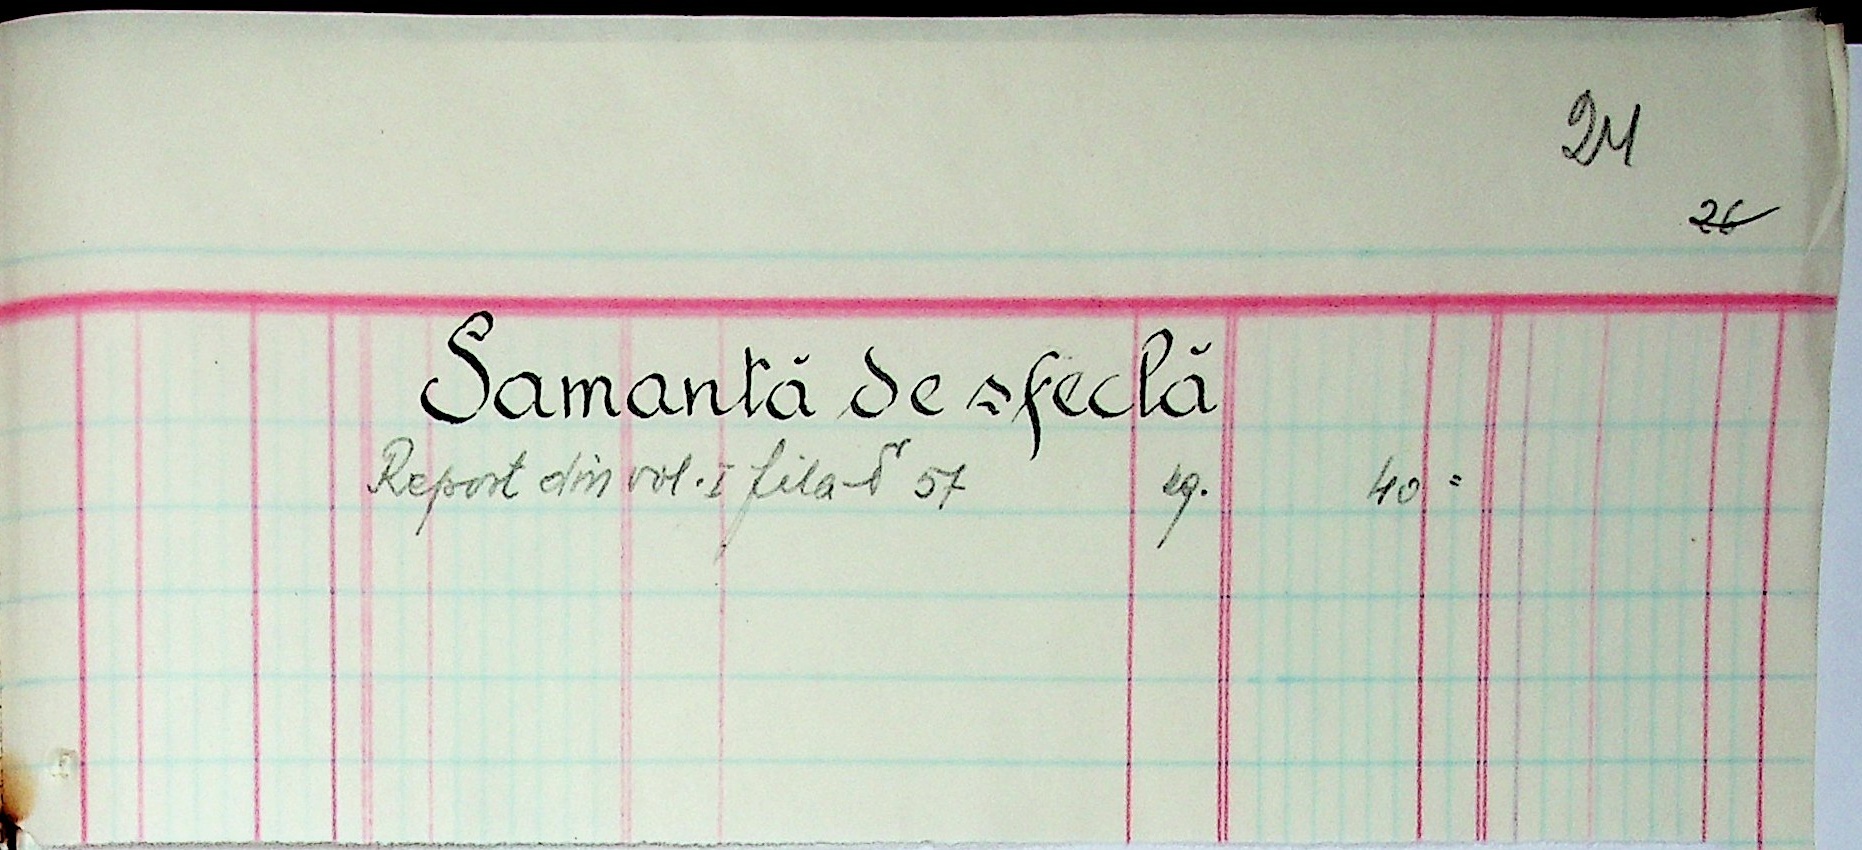 24
26
Samantă de sfeclă
Report din vol. I fila 57 kg. 40 =